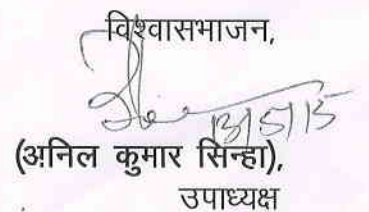 विश्वासभाजन,
(अनिल कुमार सिन्हा),
उपाध्यक्ष